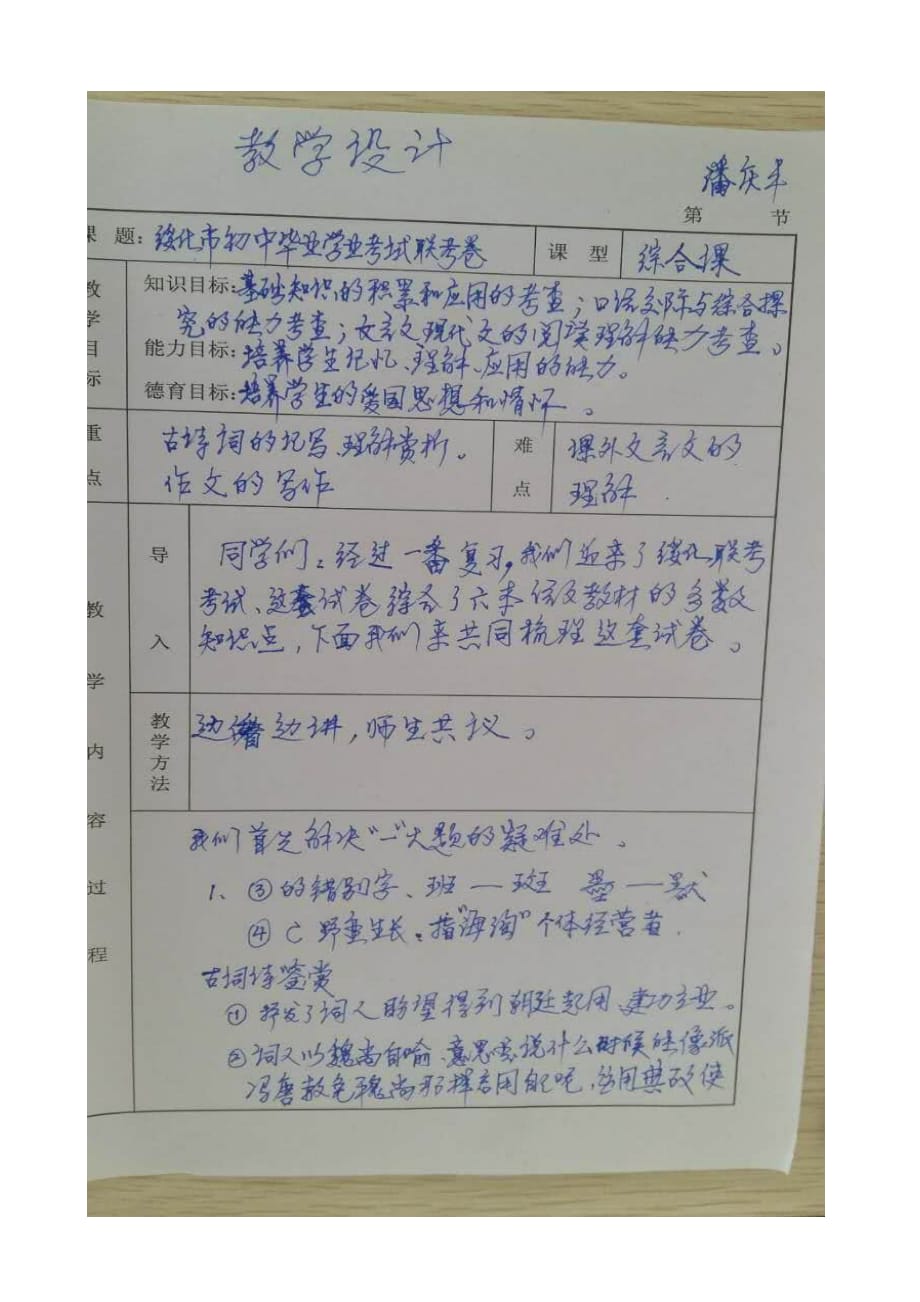 教学设计
潘庆丰
第 节
课 题: 绥化市初中毕业学业考试联考卷 课 型 综合课
教学目标
知识目标:基础知识的积累和应用的考查;口语交际与综合探
究的能力考查;文言文现代文的阅读理解能力考查。
能力目标:培养学生记忆、理解、应用的能力。
德育目标:培养学生的爱国思想和情怀。
重点
古诗词的记写、理解赏析。
作文的写作
难点
课外文言文的
理解.
教学内容过程
导入
同学们:经过一番复习,我们迎来了绥化联考
考试、这套试卷综合了六本语文教材的多数
知识点,下面我们来共同梳理这套试卷。
教学方法
边 边讲,师生共议。
我们首先解决“一”大题的疑难处。
1、③的错别字、班—斑 墨—默
④ C 野重生长。指“海淘”个体经营者.
古词诗鉴赏
① 抒发了词人盼望得到朝廷起用、建功立业。
②词人以魏尚自喻、意思 说什么时候能像派
冯唐赦免魏尚那样启用自己呢, 用典故使